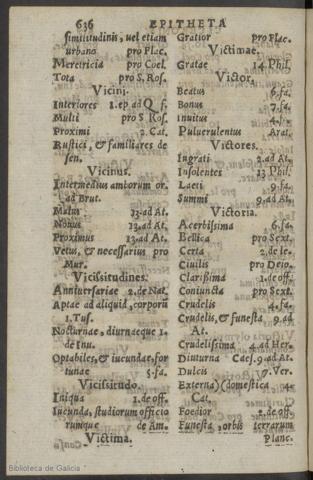 636 EPITHETA
similitudinis, uel etiam
urbano pro Plac.
Meretricia pro Coel.
Tota pro S. Ros.
Vicini.
Interiores 1. ep ad Q f.
Multi pro S Ros.
Proximi 2. Cat.
Rustici, & familiares de
sen.
Vicinus.
Intermedius amborum or.
ad Brut.
Malus 13. ad At.
Nonus 13. ad At.
Proximus 13. ad At.
Vetus, & necessarius pro
Mur.
Vicissitudines.
Anniuersariae 2. de Nat.
Aptae ad aliquid, corporũ
1. Tus.
Nocturnae, diurnaeque 1.
de Inu.
Optabiles, & iucundae, for
tunae 5. fa.
Vicissitudo.
Iniqua 1. de off.
Iucunda, studiorum officio
rumque de Am.
Victima.
Gratior pro Plac.
Victimae.
Gratae 14. Phil.
Victor.
Beatus 6. fa.
Bonus 7. fa.
Inuitus
Puluerulentus Arat.
Victores.
Ingrati 2. ad At.
Insolentes 13 Phil.
Laeti 9. fa.
Summi 9. ad At.
Victoria.
Acerbissima 6. fa.
Bellica pro Sext.
Certa 2. de le.
Ciuilis pro Deio.
Clarissima 1. de off.
Coniuncta pro Sext.
Crudelis 4. fa.
Crudelis, & funesta 9. ad
At.
Crudelissima 4. ad Her.
Diuturna Caes. 9. ad At.
Dulcis 7. Ver.
Externa) (domestica 4.
Cat.
Foedior 2. de off.
Funesta, orbis terrarum
Planc.
Biblioteca de Galicia